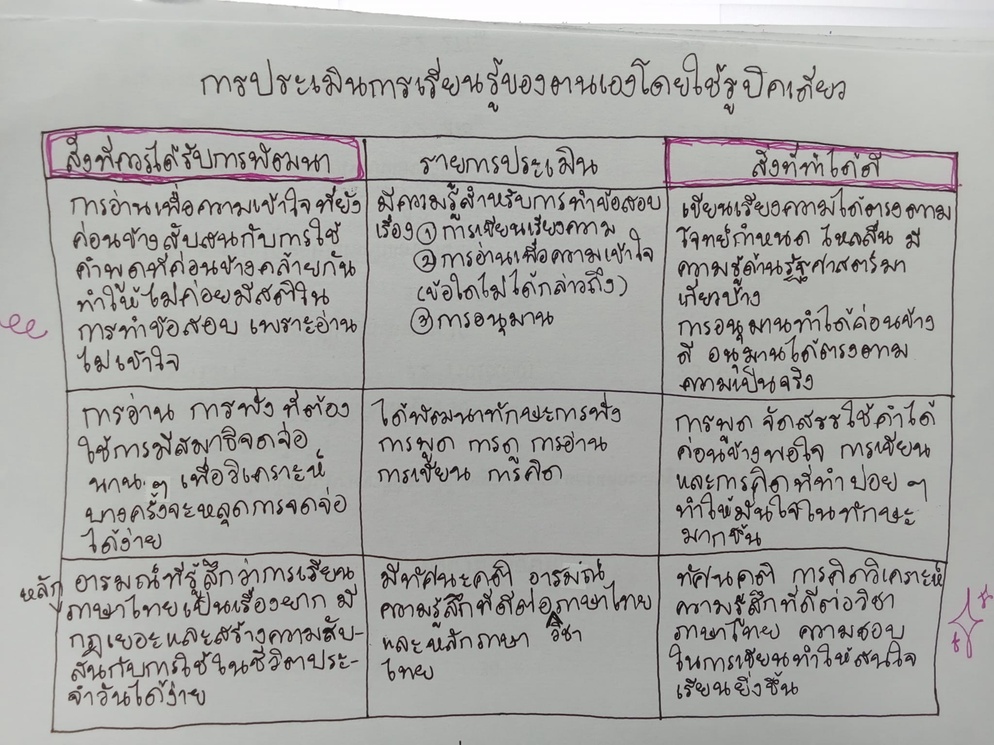 การประเมินการเรียนรู้ของตนเองโดยใช้รูบิคเดียว
สิ่งที่ควรได้รับการพัฒนา
การอ่านเพื่อความเข้าใจ ที่ยัง
ค่อนข้างสับสนกับการใช้
คำพูดที่ค่อนข้างคล้ายกัน
ทำให้ไม่ค่อยมีสติใน
การทำข้อสอบ เพราะอ่าน
ไม่เข้าใจ
รายการประเมิน
มีความรู้สำหรับการทำข้อสอบ
เรื่อง ① การเขียนเรียงความ
② การอ่านเพื่อความเข้าใจ
(ข้อใดไม่ได้กล่าวถึง)
③ การอนุมาน
สิ่งที่ทำได้ดี
เขียนเรียงความได้ตรงตาม
โจทย์กำหนด ไหลลื่น มี
ความรู้ด้านรัฐศาสตร์มา
เกี่ยวบ้าง
การอนุมานทำได้ค่อนข้าง
ดี อนุมานได้ตรงตาม
ความเป็นจริง
การอ่าน การฟัง ที่ต้อง
ใช้การมีสมาธิจดจ่อ
นาน ๆ เพื่อวิเคราะห์
บางครั้งจะหลุดการจดจ่อ
ได้ง่าย
ได้พัฒนาทักษะการฟัง
การพูด การดู การอ่าน
การเขียน การคิด
การพูด จัดสรรใช้คำได้
ค่อนข้างพอใจ การเขียน
และการคิดที่ทำบ่อย ๆ
ทำให้มั่นใจในทักษะ
มากขึ้น
หลัก อารมณ์ที่รู้สึกว่าการเรียน
ภาษาไทยเป็นเรื่องยาก มี
กฎเยอะและสร้างความสับ-
สนกับการใช้ในชีวิตประ-
จำวันได้ง่าย
มีทัศนะคติ อารมณ์
ความรู้สึกที่ดีต่อภาษาไทย
และหลักภาษา วิชา
ไทย
ทัศนคติ การคิดวิเคราะห์
ความรู้สึกที่ดีต่อวิชา
ภาษาไทย ความชอบ
ในการเขียนทำให้สนใจ
เรียนยิ่งขึ้น